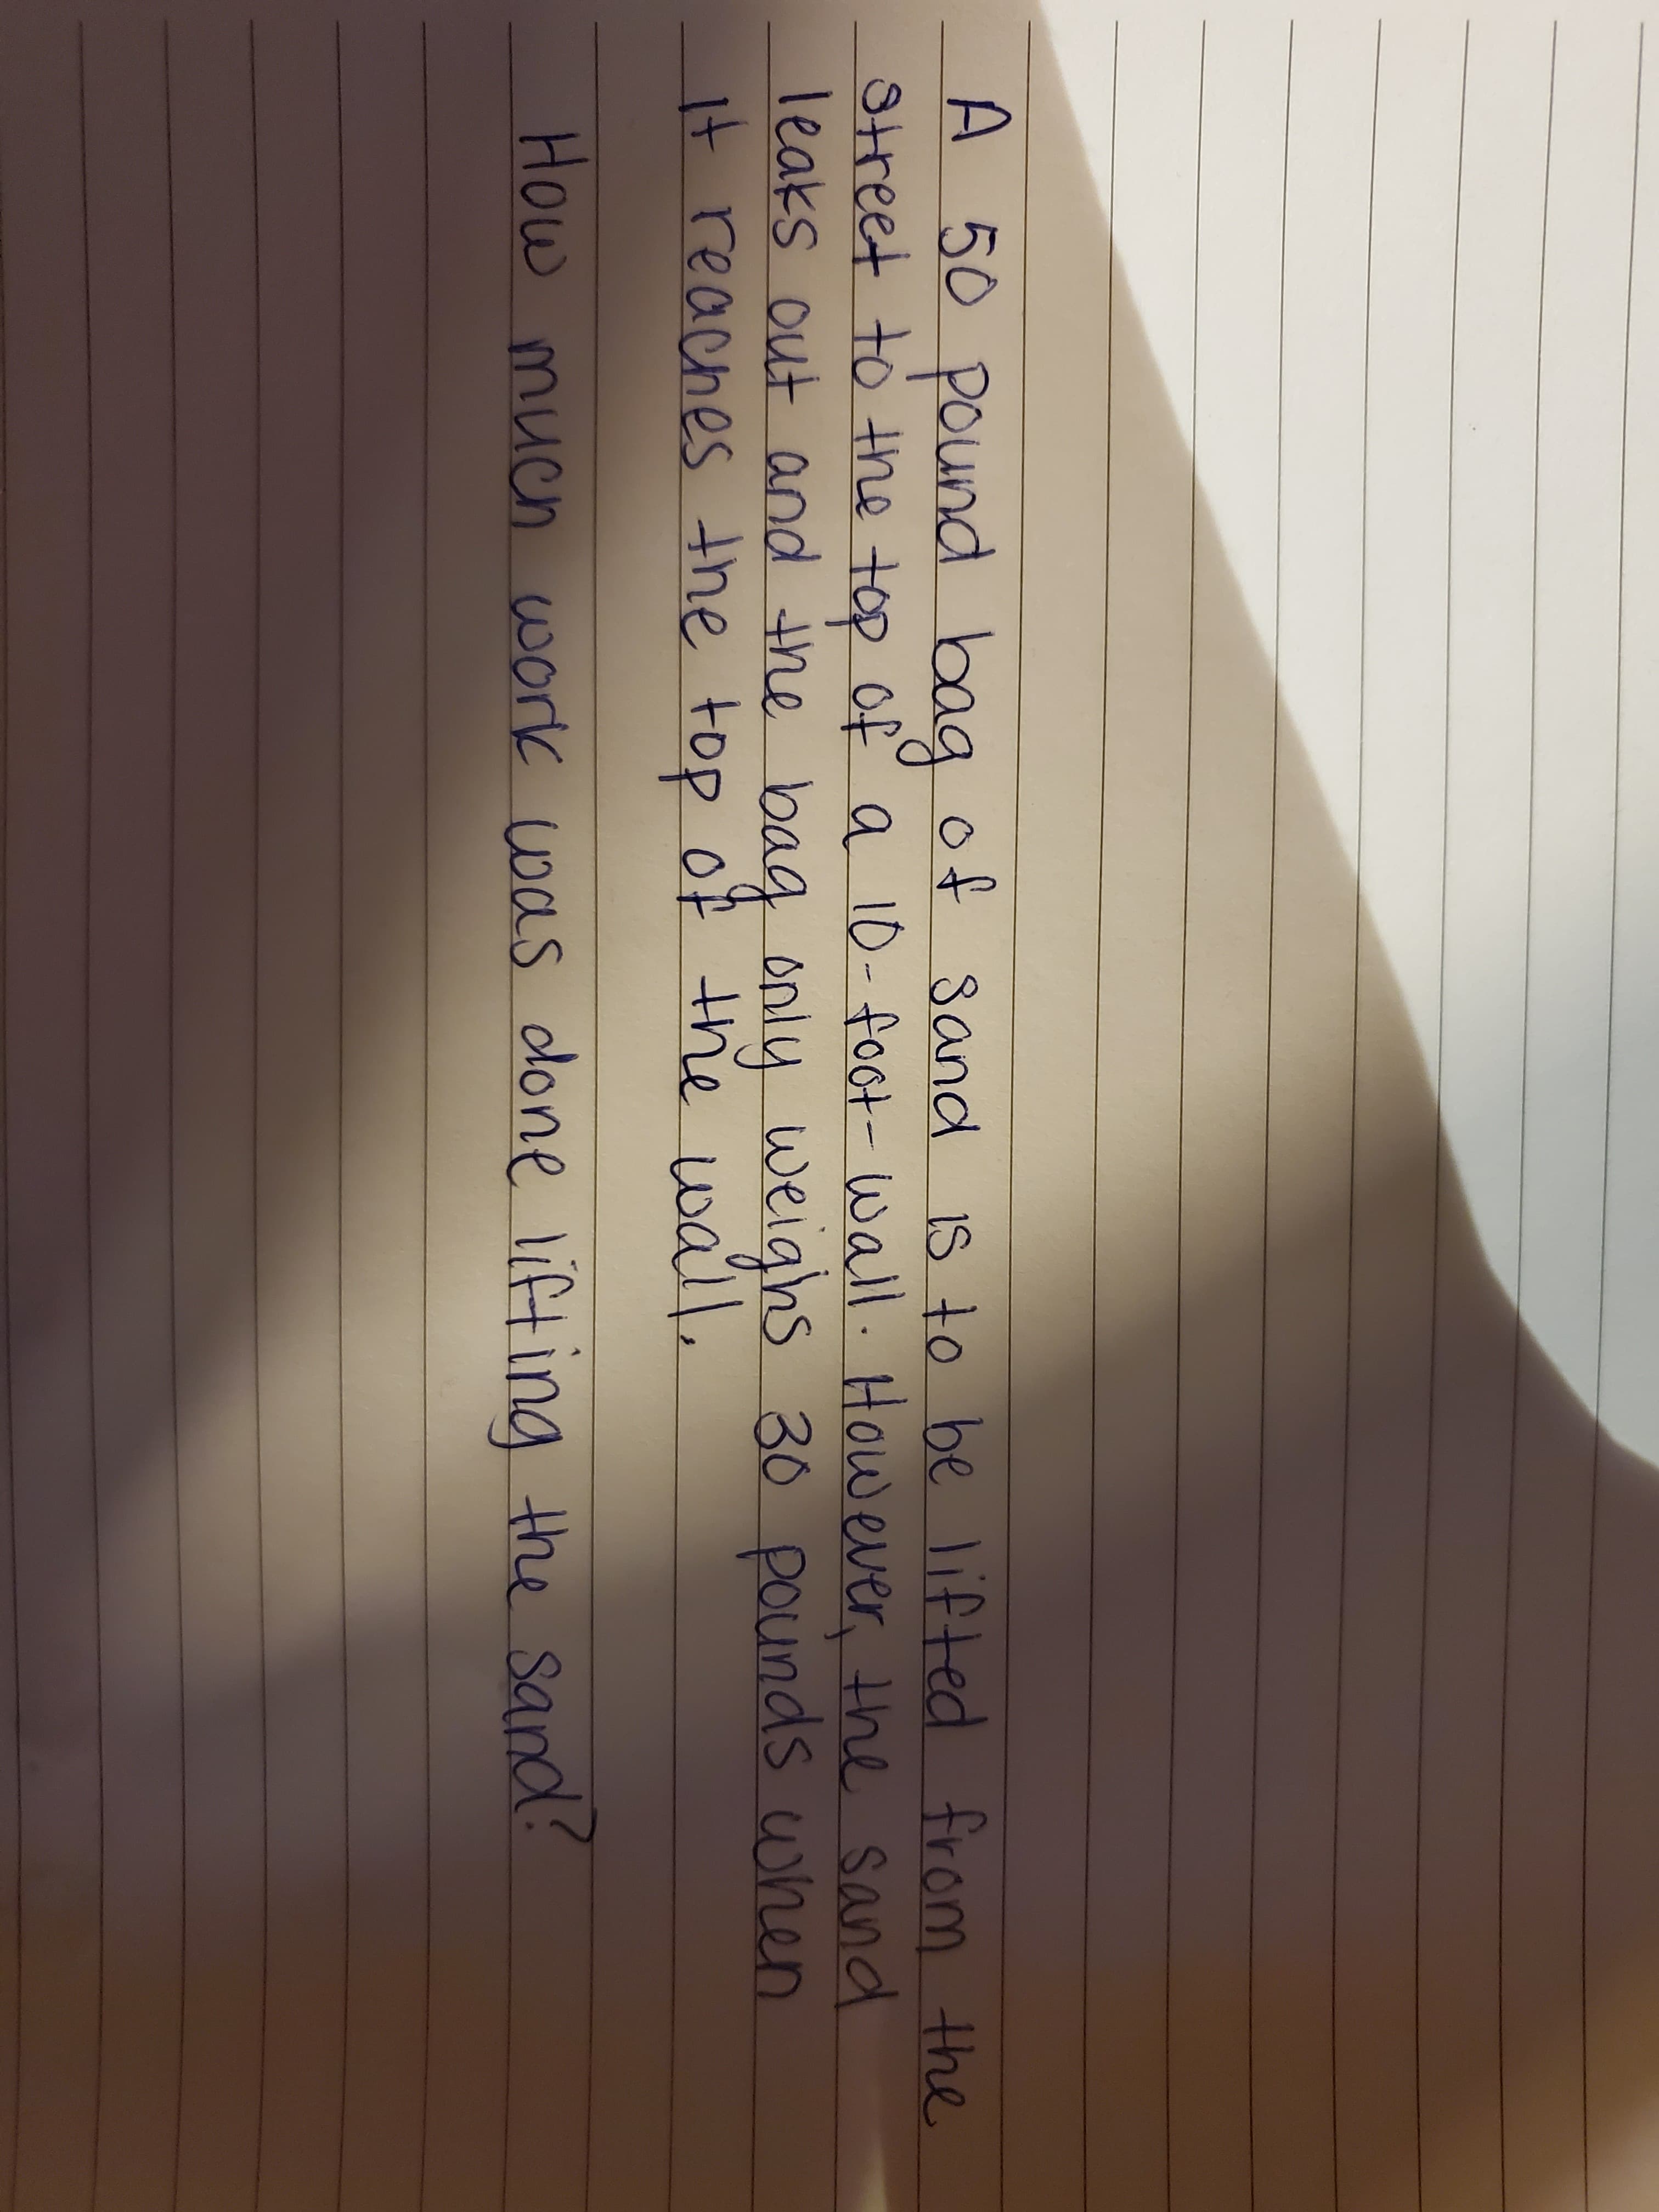 A 50 pound bag of sand is to be lifted from the
street to the top of a 10-foot-wall. However, the sand
leaks out and the bag only weighs 30 pounds when
it reaches the top of the wall.
How much work was done lifting the sand?